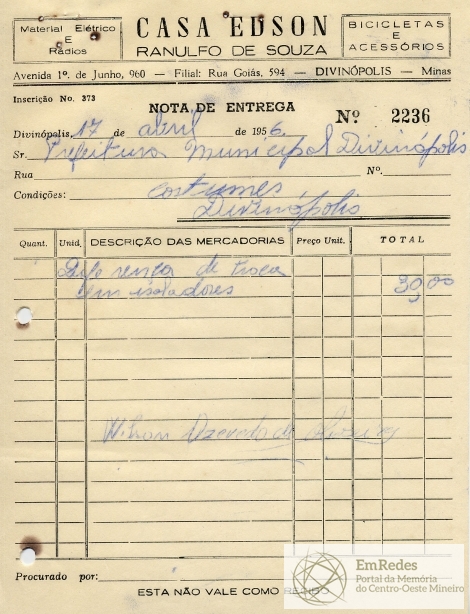 Material Elétrico
E
Rádios
CASA EDSON
RANULFO DE SOUZA
BICICLETAS
E
ACESSÓRIOS
Avenida 1º. de Junho, 960 — Filial: Rua Goiás, 594 — DIVINÓPOLIS — Minas
Inscrição No. 373
NOTA DE ENTREGA
Nº 2236
Divinópolis, 17 de abril de 1956.
Sr. Prefeitura Municipal Divinópolis
Rua Nº.
Condições: Costumes
Divinópolis
Quant. Unid. DESCRIÇÃO DAS MERCADORIAS Preço Unit. TOTAL
Diferença de troca
em isoladores 30,00
Wilson Azevedo de Oliveira
Procurado por:
ESTA NÃO VALE COMO RECIBO
EmRedes
Portal da Memória
do Centro-Oeste Mineiro